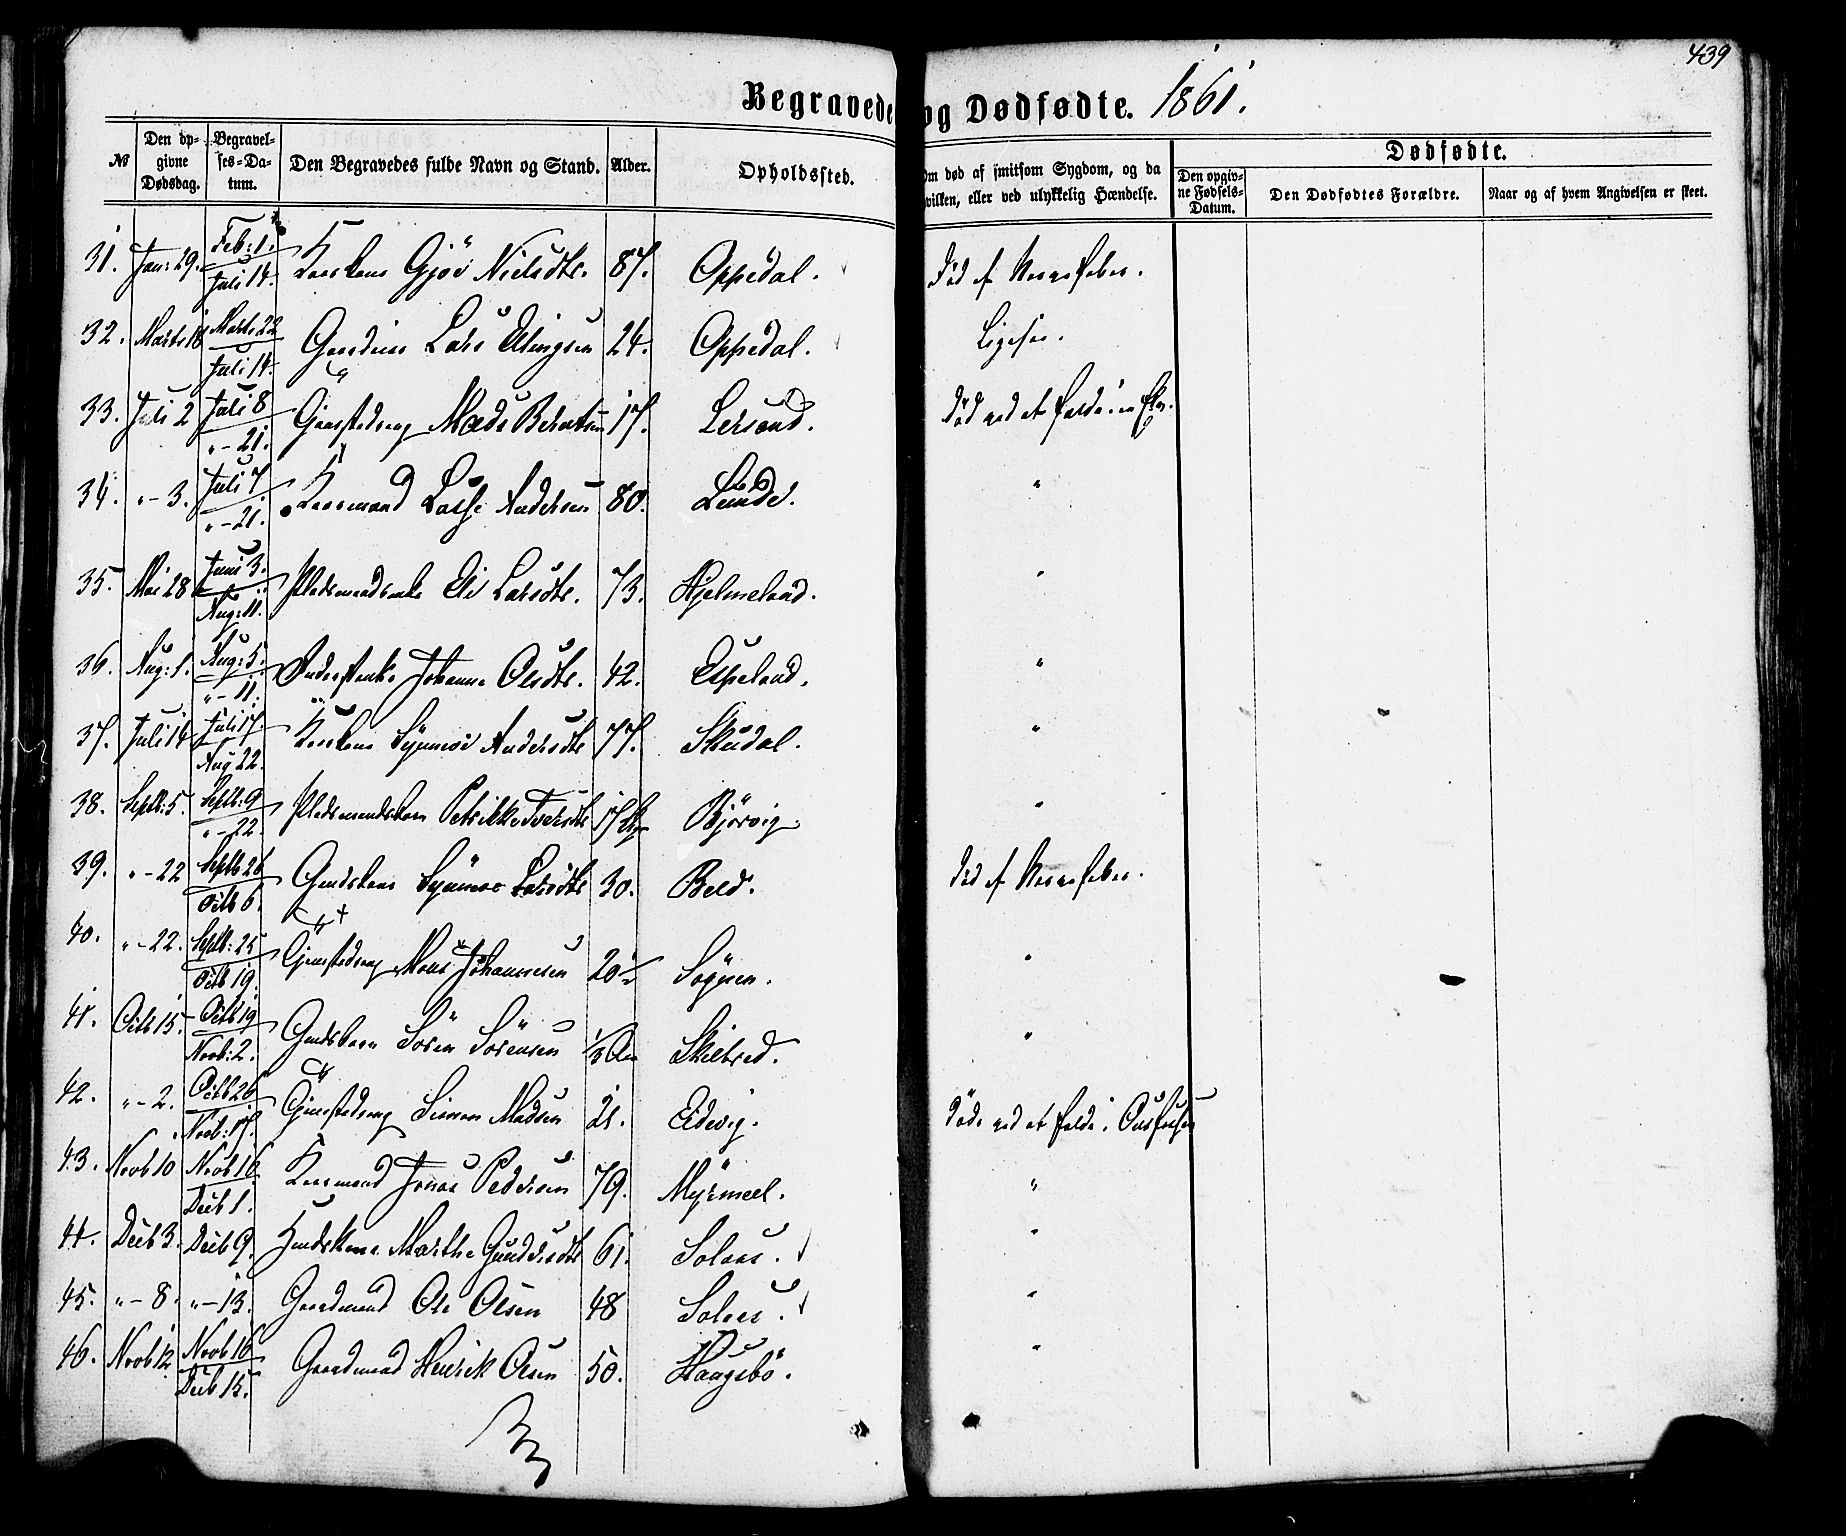 439
Begravede og Dødfødte. 1861.
No
Den opgivne Dødsdag.
Begravelses-Datum.
Den Begravedes fulde Navn og Stand.
Alder.
Opholdssted.
Om død af smitsom Sygdom, og da hvilken, eller ved ulykkelig Hændelse.
Dødfødte.
Den opgivne Fødsels-Datum.
Den Dødfødtes Forældre.
Naar og af hvem Angivelsen er skeet.
31. Jan: 29. Feb: 1. Juli 14. Gjöri Nielsdtr. 87. Oppedal. Död af Nervefeber.
32. Marts 16 Marts 22 Juli 14. Lars Elingsen 24. Oppedal. Ligesaa.
33. Juli 2 Juli 8 " - 21. Mads Berntsen 17. Leraand. Död ved et Fald i en Elv.
34. " - 3. Juli 7 " - 21. Kaarmand Lasse Andersen 80. Lunde. "
35. Mai 28 Juni 3. Aug: 11. Pladsmandsenke Eli Larsdtr. 73. Hjelmeland. "
36. Aug: 1. Aug: 5. " - 11. Johanne Olsdtr. 42. Espeland. "
37. Juli 14 Juli 17. Aug 22. Synnöve Andersdtr 77. Skudal. "
38. Septb: 5. Septb: 9 " - 22. Pladsmandsbarn Petrikke 17 Björvig. "
39. " - 22 Septb 26 Octb 6. Synnöve Larsdtr 30. Död af Nervefeber.
40. " - 22. Septb: 25 Octb 19. Mons Johannesen 20 Sögnen. "
41. Octb 15. Octb 19 Novb: 2. Gmdsbarn Sören Sörensen Skilbred. "
42. " - 2. Octb 26 Novb: 17. Simon Madsen 21. Eidvig. Död ved et Fald i
43. Novb 10 Novb 16 Decb 1. Kaarmand Jonas Pedersen 79. Myrmeel. "
44. Decb 3. Decb 9. Marthe Gundersdtr 61. Solaas. "
45. " - 8. " - 13. Gaardmand Ole Olsen 48 Solaas. "
46. Novb 12. Novb 16 Decb 15. Gaardmand Henrik Olsen 50. Haugsbö. "